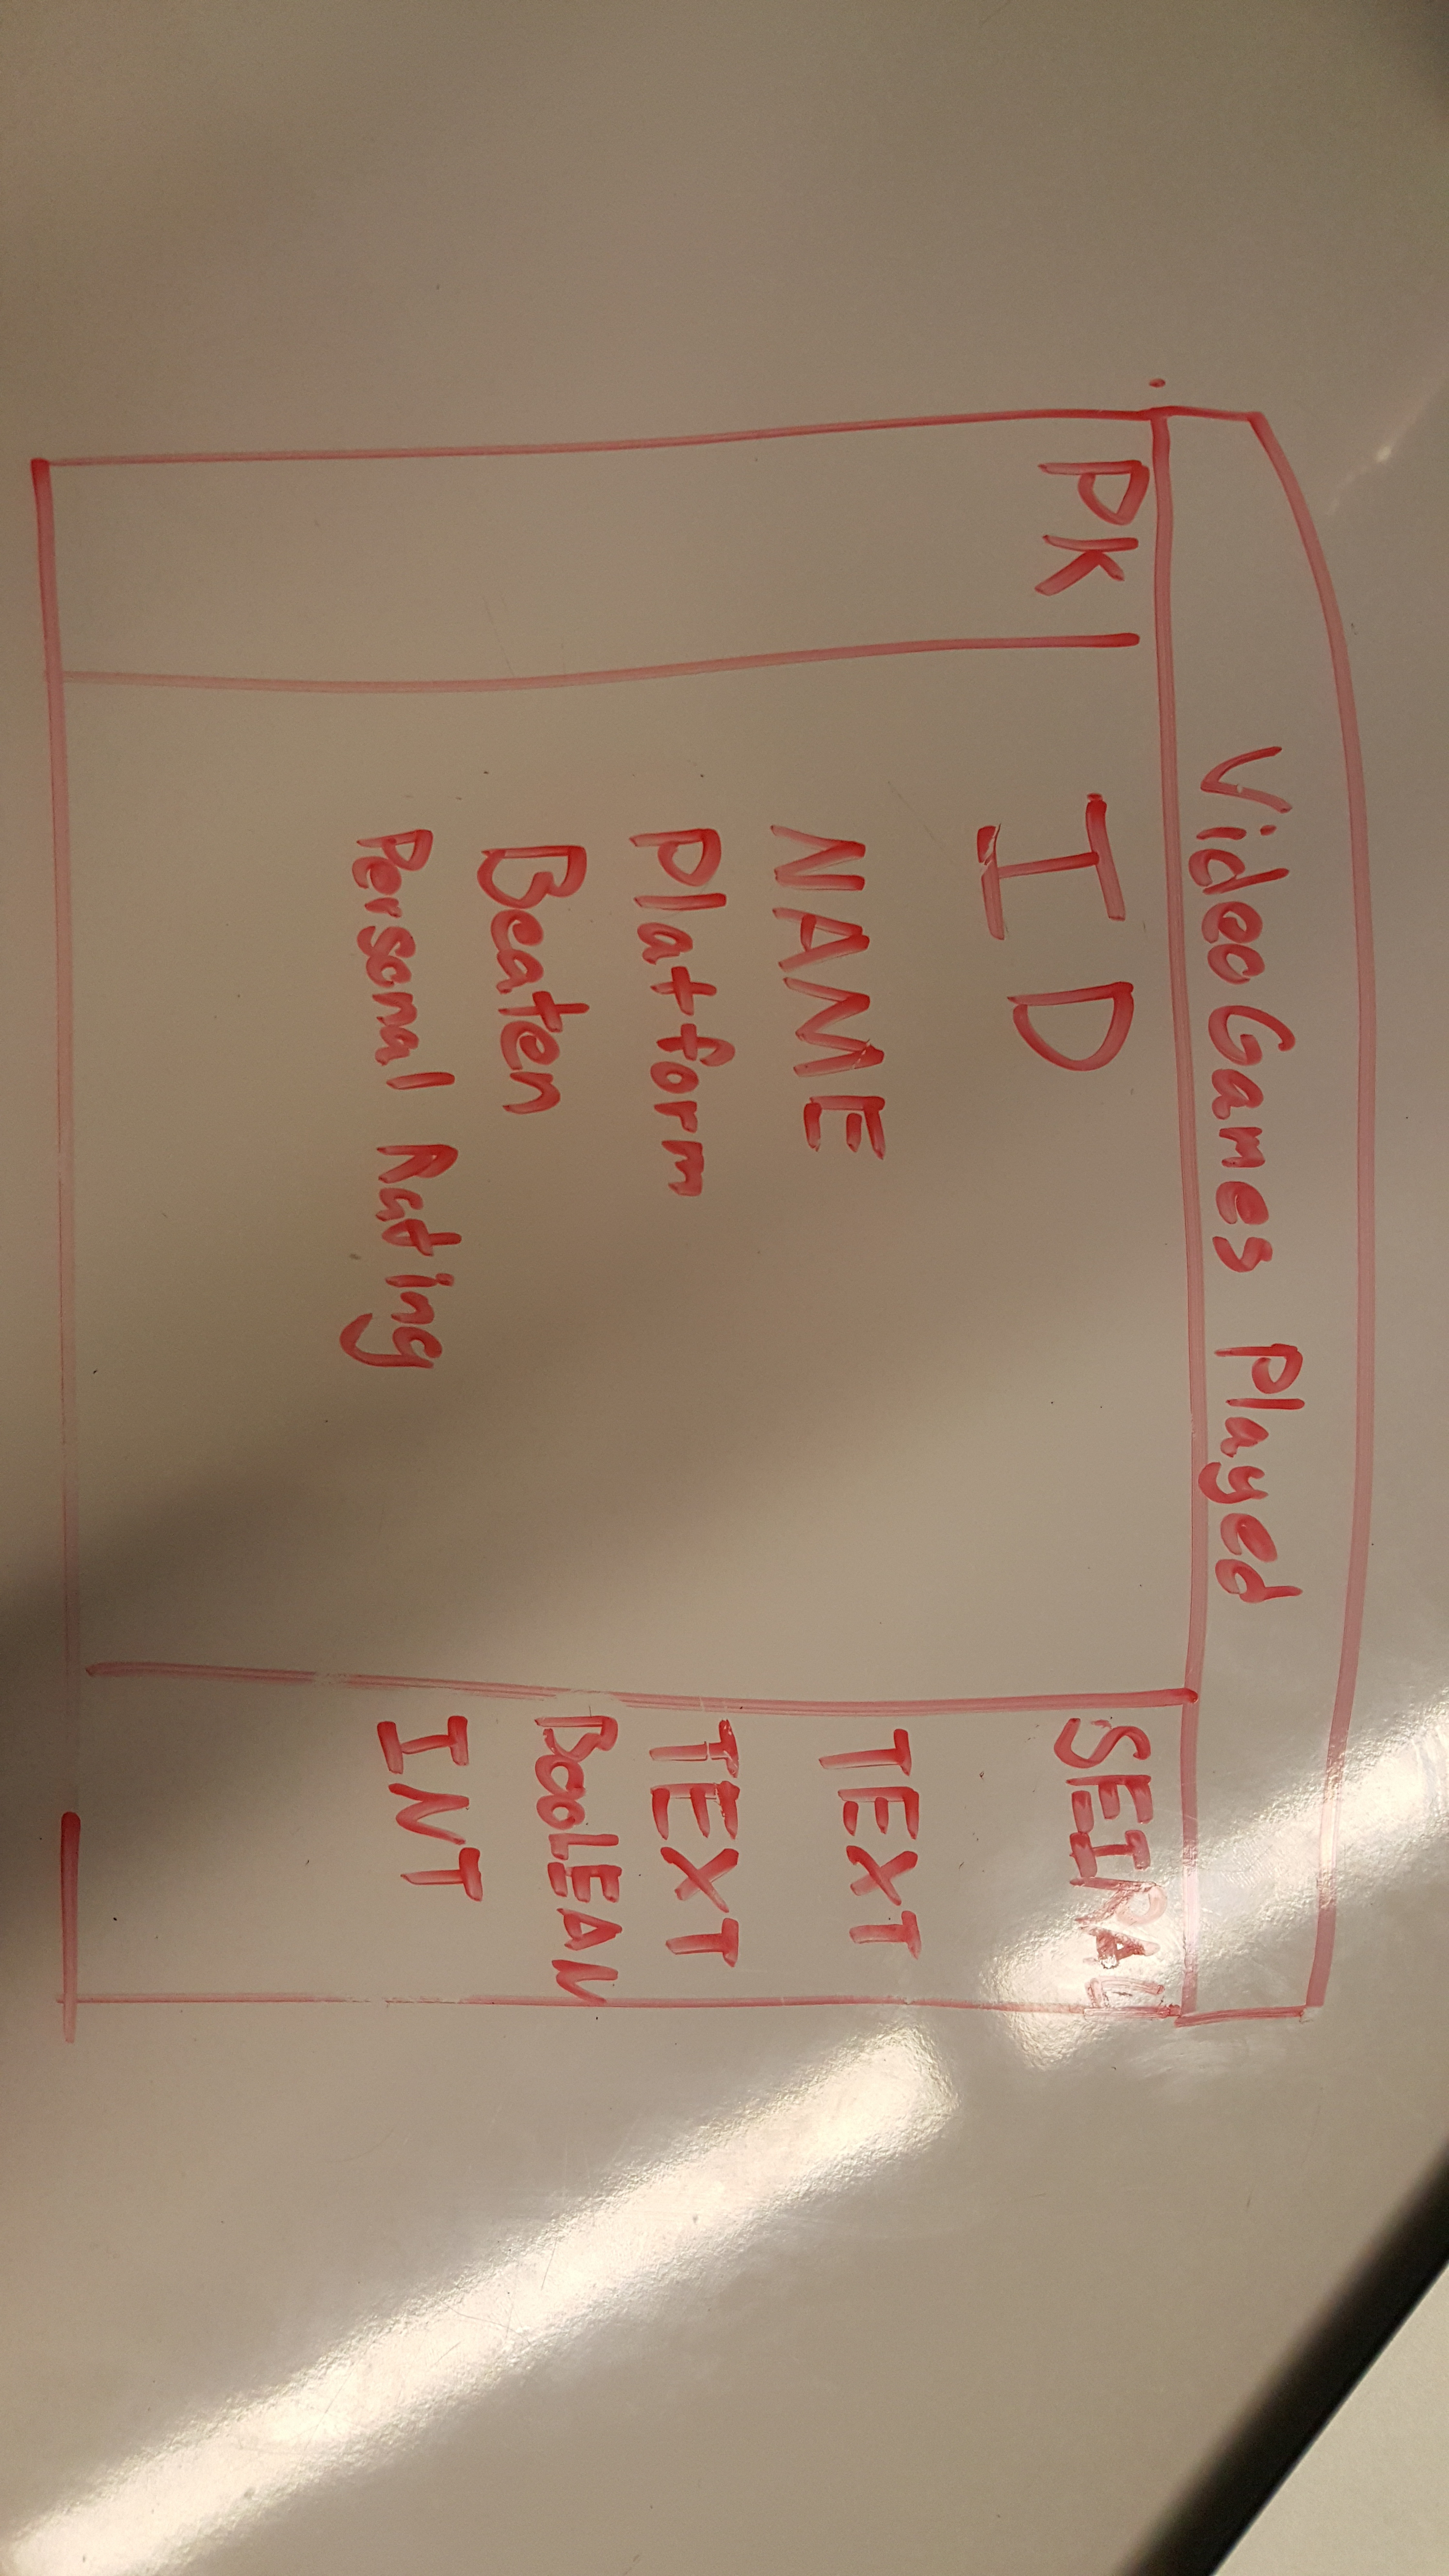 Video Games Played
PK ID SEIRAL
NAME TEXT
Platform TEXT
Beaten BOOLEAN
Personal Rating INT